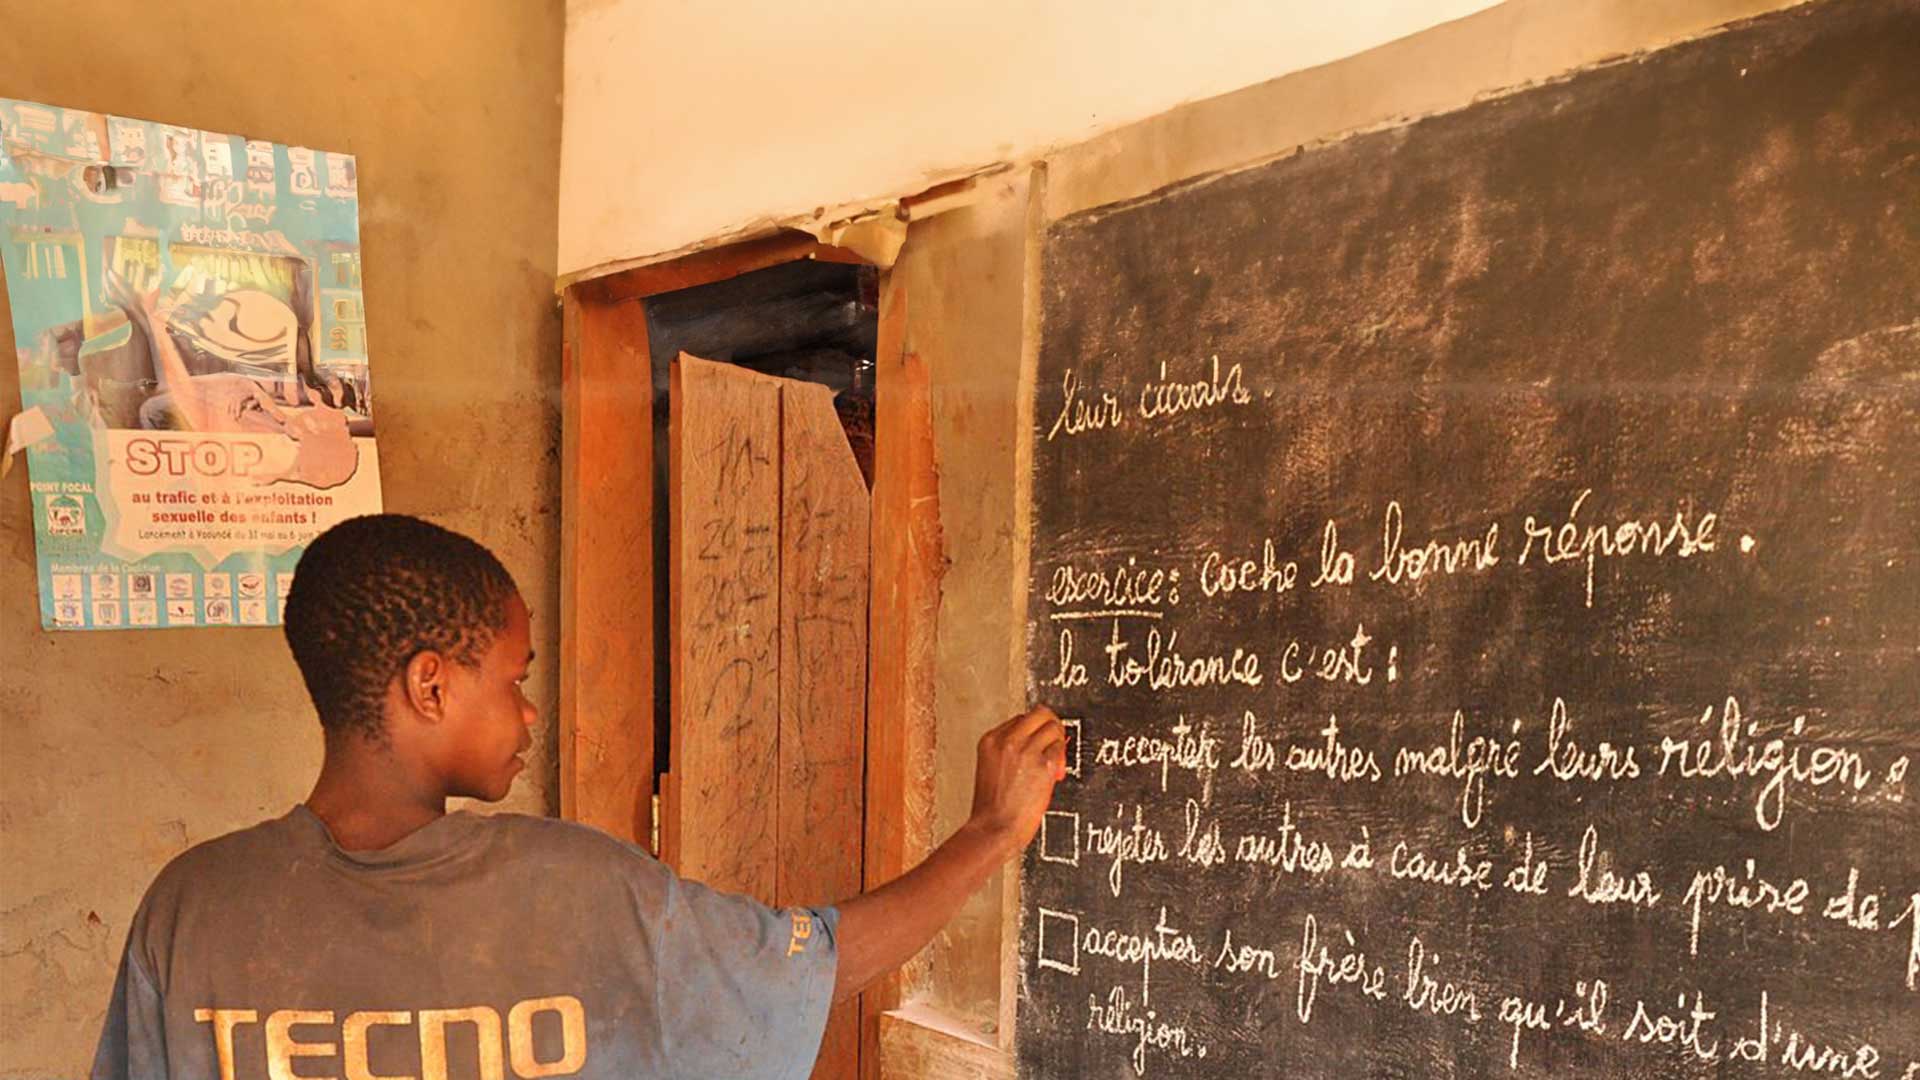 STOP
au trafic et à l'exploitation
sexuelle des enfants !
Lancement à Yaoundé du 31 mai au 6 juin
POINT FOCAL
CIPCRE
Membres de la Coalition
TECNO
leur
escercice: coche la bonne réponse.
la tolérance c'est :
accepter les autres malgré leurs réligion
rejeter les autres à cause de leur prise de
accepter son frère bien qu'il soit d'une
réligion.